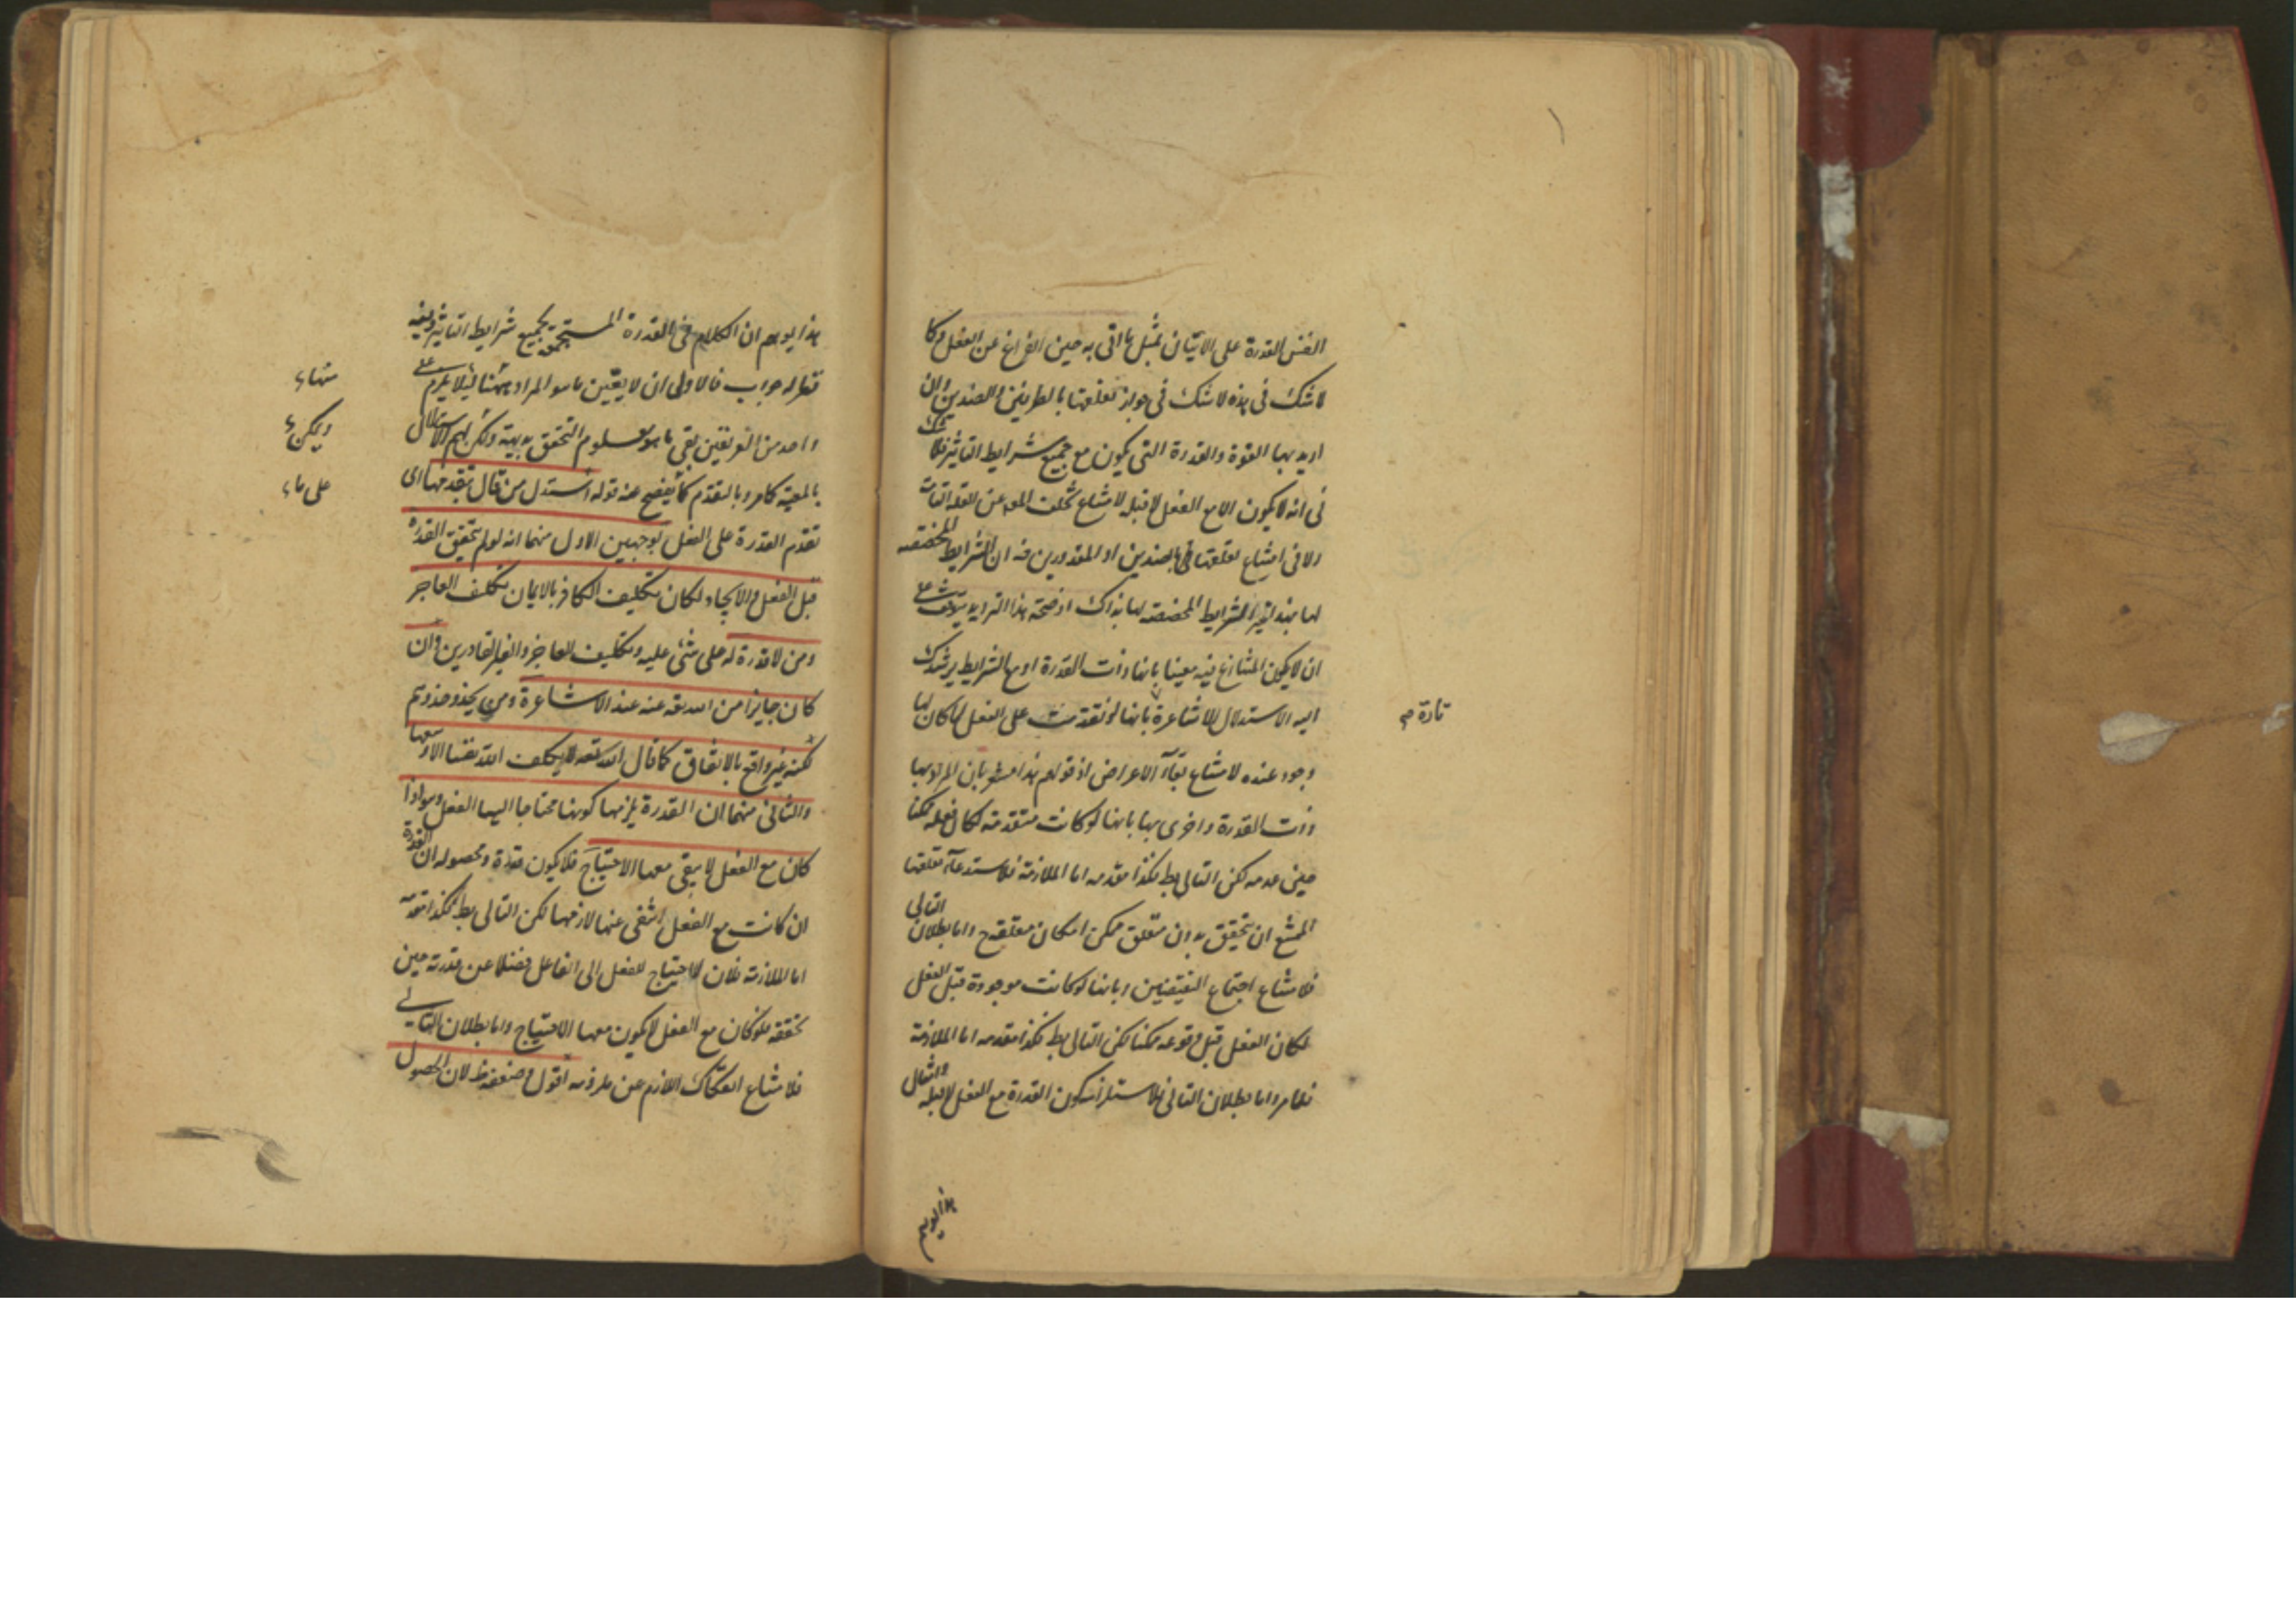 النفس القدرة على الاتيان بمثل ما اتى به حين الفراغ عن الفعل وكما
لا شك فى هذه لا شك فى جواز تعلقها بالطرفين والضدين وان
اريد بها القوة والقدرة التى يكون مع جميع شرايط التاثير فلا شك
فى انه لا يكون الا مع الفعل لا قبله لامتناع تخلف المع عن العلة التامة
ولا فى امتناع تعلقها بالضدين او المقدورين فه ان الشرايط المخصصه
لها بهذا غير الشرايط المخصصة لها بذاك اوضحة هذا الترديد يتوقف على
ان لا يكون المتنازع فيه معينا بانها ذات القدرة او مع الشرايط يرشدك
اليه الاستدلال للاشاعرة بانها لو تقدمت على الفعل لما كان لها
تارة
وجود عنده لامتناع بقاء الاعراض اذ قولهم هذا مشعر بان المراد بها
ذات القدرة واخرى بها بانها لو كانت متقدمة لكان فعله ممكنا
حين عدمه لكن التالى بط فكذا مقدمه اما الملازمة فلاستدعاء تعلقها
الممتنع ان يتحقق بدون متعلق ممكن امكان متعلقه ح واما بطلان التالى
فلامتناع اجتماع النقيضين وبانها لو كانت موجودة قبل الفعل
لكان الفعل قبل وقوعه ممكنا لكن التالى بط فكذا مقدمه اما الملازمة
فظاهر واما بطلان التالى فلاستلزامه كون القدرة مع الفعل لا قبله
هذا يوهم
هذا يوهم ان الكلام فى القدرة المستجمعة بجميع شرايط التاثير وفيه
فعله جواب فالاولى ان لا يعين ما هو المراد ههنا لئلا يلزم على
منها
واحد من الفريقين بقى ما هو معلوم التحقق بديهة ولكن لهم الاستدلال
ويمكن
بالمعية كما مر وبالتقدم كما يفصح عنه قوله استدل من قال بتقدمها اى
على ما
تقدم القدرة على الفعل بوجهين الاول منهما انه لو لم يتحقق القدرة
قبل الفعل والايجاد لكان تكليف الكافر بالايمان تكليف العاجز
ومن لا قدرة له على شئ عليه وتكليف العاجز والغير القادرين وان
كان جايزا من الله تعه عند الاشاعرة ومن يحذو حذوهم
لكنه غير واقع بالاتفاق كما قال الله تعه لا يكلف الله نفسا الا وسعها
والثانى منهما ان القدرة يلزمها كونها محتاجا اليها الفعل وهو اذا
كان مع الفعل لا يبقى معها الاحتياج فلا يكون قدرة ومحصوله ان القدرة
ان كانت مع الفعل انتفى عنها لازمها لكن التالى بط فكذا مقدمه
اما الملازمة فلان الاحتياج للفعل الى الفاعل فضلا عن قدرته حين
تحققه فلو كان مع الفعل لا يكون معها الاحتياج واما بطلان التالى
فلامتناع انفكاك اللازم عن ملزومه اقول وضعفه ظ لان الحصول